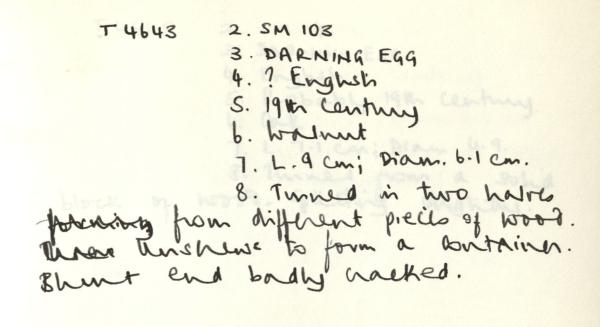 T 4643 2. SM 103
3. DARNING EGG
4. ? English
5. 19th Century
6. Walnut
7. L. 9 cm; Diam. 6.1 cm.
8. Turned in two halves
from different pieces of wood.
to form a container.
Blunt end badly cracked.